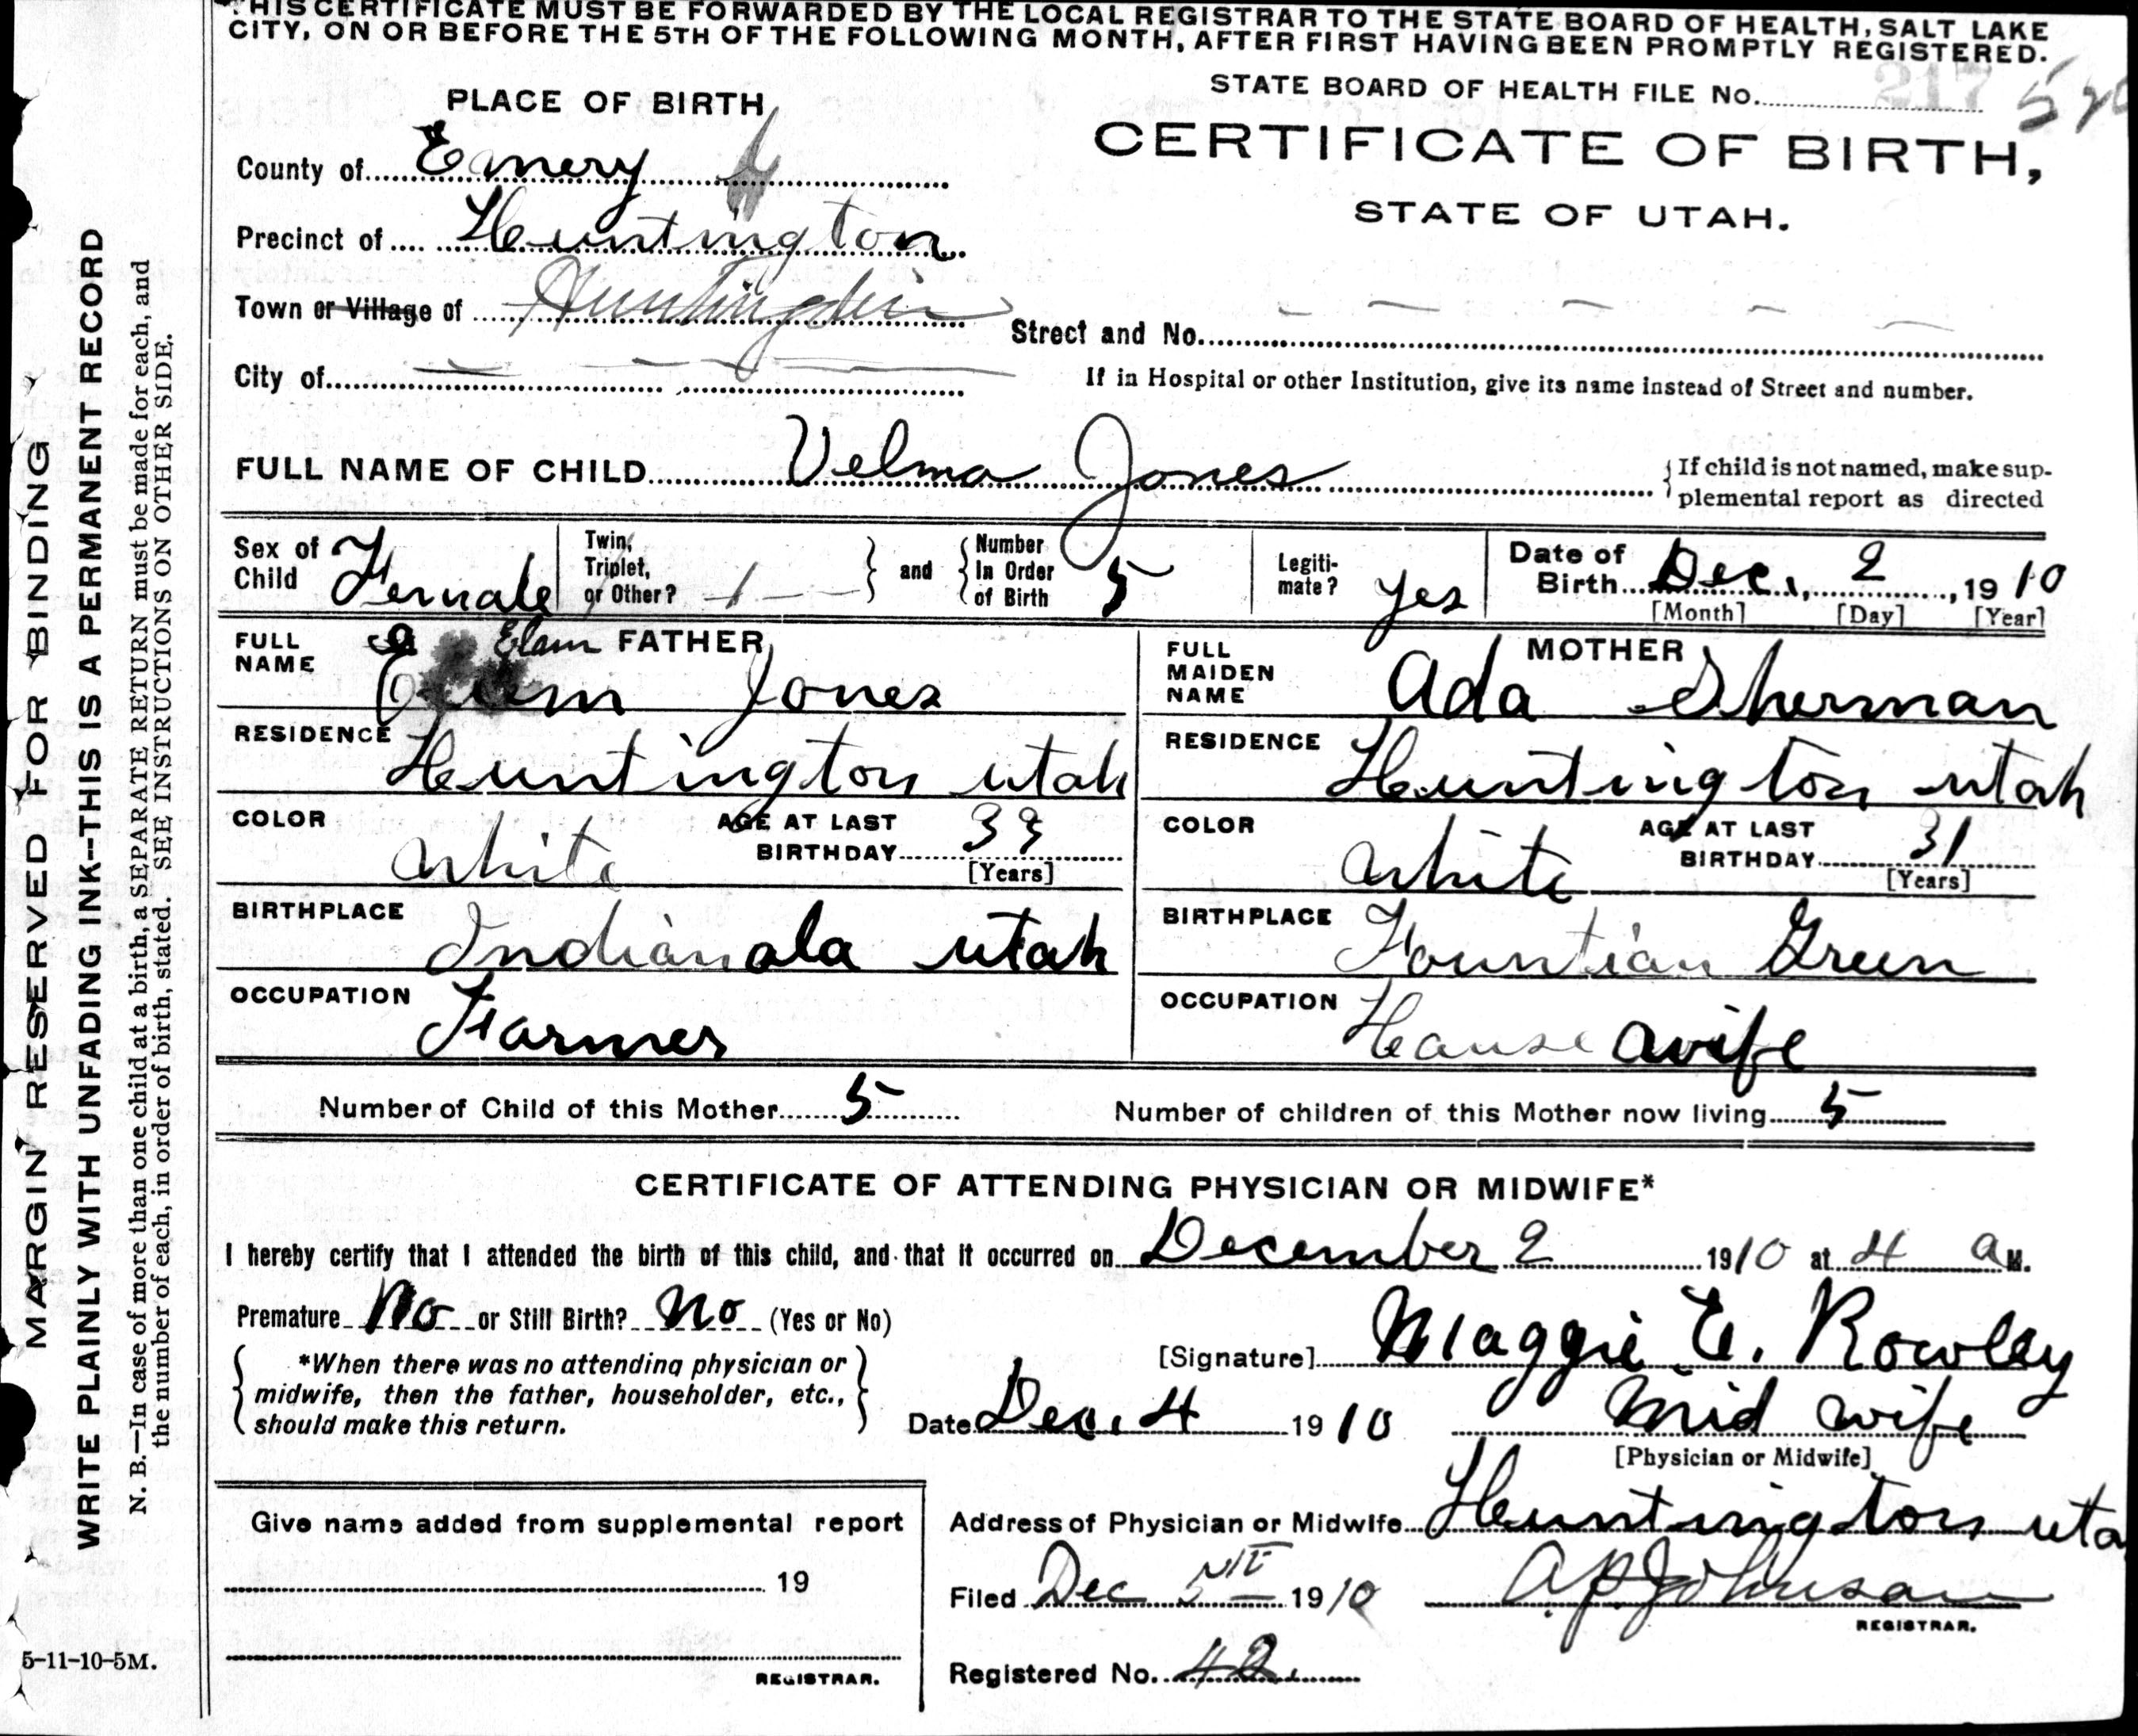 THIS CERTIFICATE MUST BE FORWARDED BY THE LOCAL REGISTRAR TO THE STATE BOARD OF HEALTH, SALT LAKE
CITY, ON OR BEFORE THE 5TH OF THE FOLLOWING MONTH, AFTER FIRST HAVING BEEN PROMPTLY REGISTERED.
STATE BOARD OF HEALTH FILE No. 217
PLACE OF BIRTH
CERTIFICATE OF BIRTH,
STATE OF UTAH.
County of Emery
Precinct of Huntington
Town or Village of Huntington
Street and No.
City of
If in Hospital or other Institution, give its name instead of Street and number.
FULL NAME OF CHILD Velma Jones
If child is not named, make sup-
plemental report as directed
Sex of Child Female
Twin, Triplet, or Other? 1 and Number In Order of Birth 5
Legiti-mate? yes
Date of Birth Dec. 2, 1910
[Month] [Day] [Year]
FATHER
FULL NAME Elam Jones
RESIDENCE Huntington utah
COLOR white AGE AT LAST BIRTHDAY [Years]
BIRTHPLACE Indianola utah
OCCUPATION Farmer
MOTHER
FULL MAIDEN NAME Ada Sherman
RESIDENCE Huntington utah
COLOR white AGE AT LAST BIRTHDAY 31 [Years]
BIRTHPLACE Fountian Green
OCCUPATION House wife
Number of Child of this Mother 5 Number of children of this Mother now living 5
CERTIFICATE OF ATTENDING PHYSICIAN OR MIDWIFE*
I hereby certify that I attended the birth of this child, and that it occurred on December 2 1910 at 4 a M.
Premature No or Still Birth? No (Yes or No)
*When there was no attending physician or
midwife, then the father, householder, etc.,
should make this return.
[Signature] Maggie E. Rowley
Date Dec. 4 1910 Mid wife
[Physician or Midwife]
Give name added from supplemental report
19
REGISTRAR.
Address of Physician or Midwife Huntington uta
Filed Dec 1910 A.P. Johnson
REGISTRAR.
Registered No. 42.
MARGIN RESERVED FOR BINDING
WRITE PLAINLY WITH UNFADING INK--THIS IS A PERMANENT RECORD
N. B.—In case of more than one child at a birth, a SEPARATE RETURN must be made for each, and
the number of each, in order of birth, stated. SEE INSTRUCTIONS ON OTHER SIDE.
5-11-10-5M.